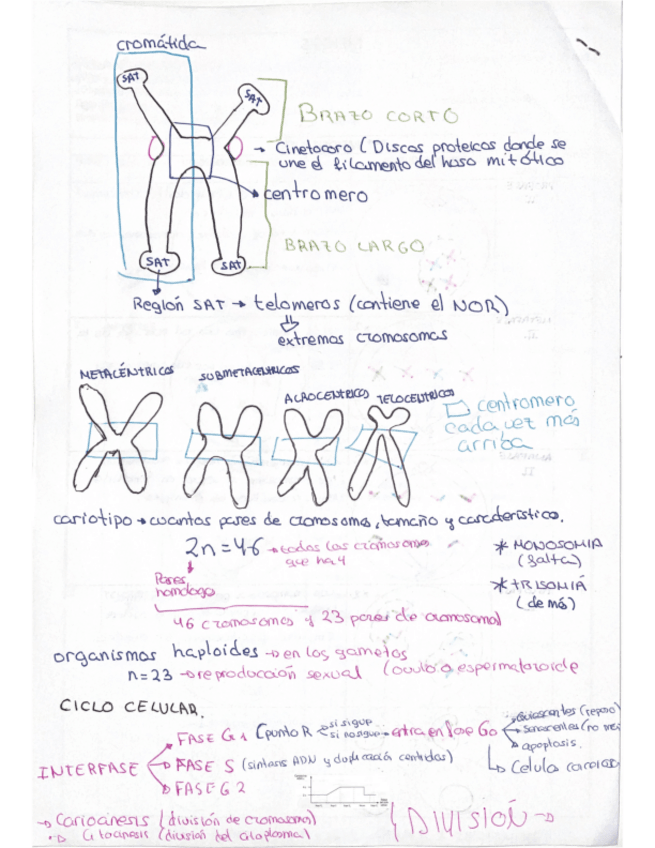 cromátida
SAT
SAT
BRAZO CORTO
Cinetocoro (Discos proteicos donde se
une el filamento del huso mitótico
centromero
BRAZO LARGO
SAT
SAT
Región SAT → telomeros (contiene el NOR)
extremos cromosomas
METACÉNTRICOS
SUBMETACENTRICOS
ACROCENTRICO
TELOCENTRICOS
centromero
cada vez más
arriba
cariotipo → cuantos pares de cromosomas, tamaño y característico.
2n = 46 → todos los cromosomas
que hay
* MONOSOMIA
(falta)
Pares
homologo
* TRISOMIÁ
(de más)
46 cromosomas y 23 pares de cromosomas)
organismos haploides → en los gametos
n = 23 → reproducción sexual (óvulo o espermatozoide
CICLO CELULAR.
FASE G1 (punto R
si sigue
si no sigue → entra en fase G0
Quiescentes (reposo)
Senescentes (no
apoptosis.
INTERFASE
FASE S (síntesis ADN y duplicación centriolos)
Celula
FASE G2
→ Cariocinesis (división de cromosomas)
→ Citocinesis (división del citoplasma)
DIVISIÓN →